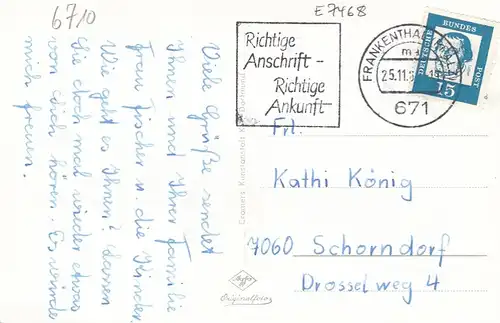 6710
E7468
Richtige
Anschrift -
Richtige
Ankunft
FRANKENTHAL (PFALZ)
25.11.
671
DEUTSCHE
BUNDES
POST
15
Viele Grüße sendet
Ihnen und Ihrer Familie
Frau Fischer u. die Kinder.
Wie geht es Ihnen? Lassen
Sie doch mal wieder etwas
von sich hören. Es würde
mich freuen.
Frl.
Kathi König
7060 Schorndorf
Drosselweg 4
Agfa
Originalfoto